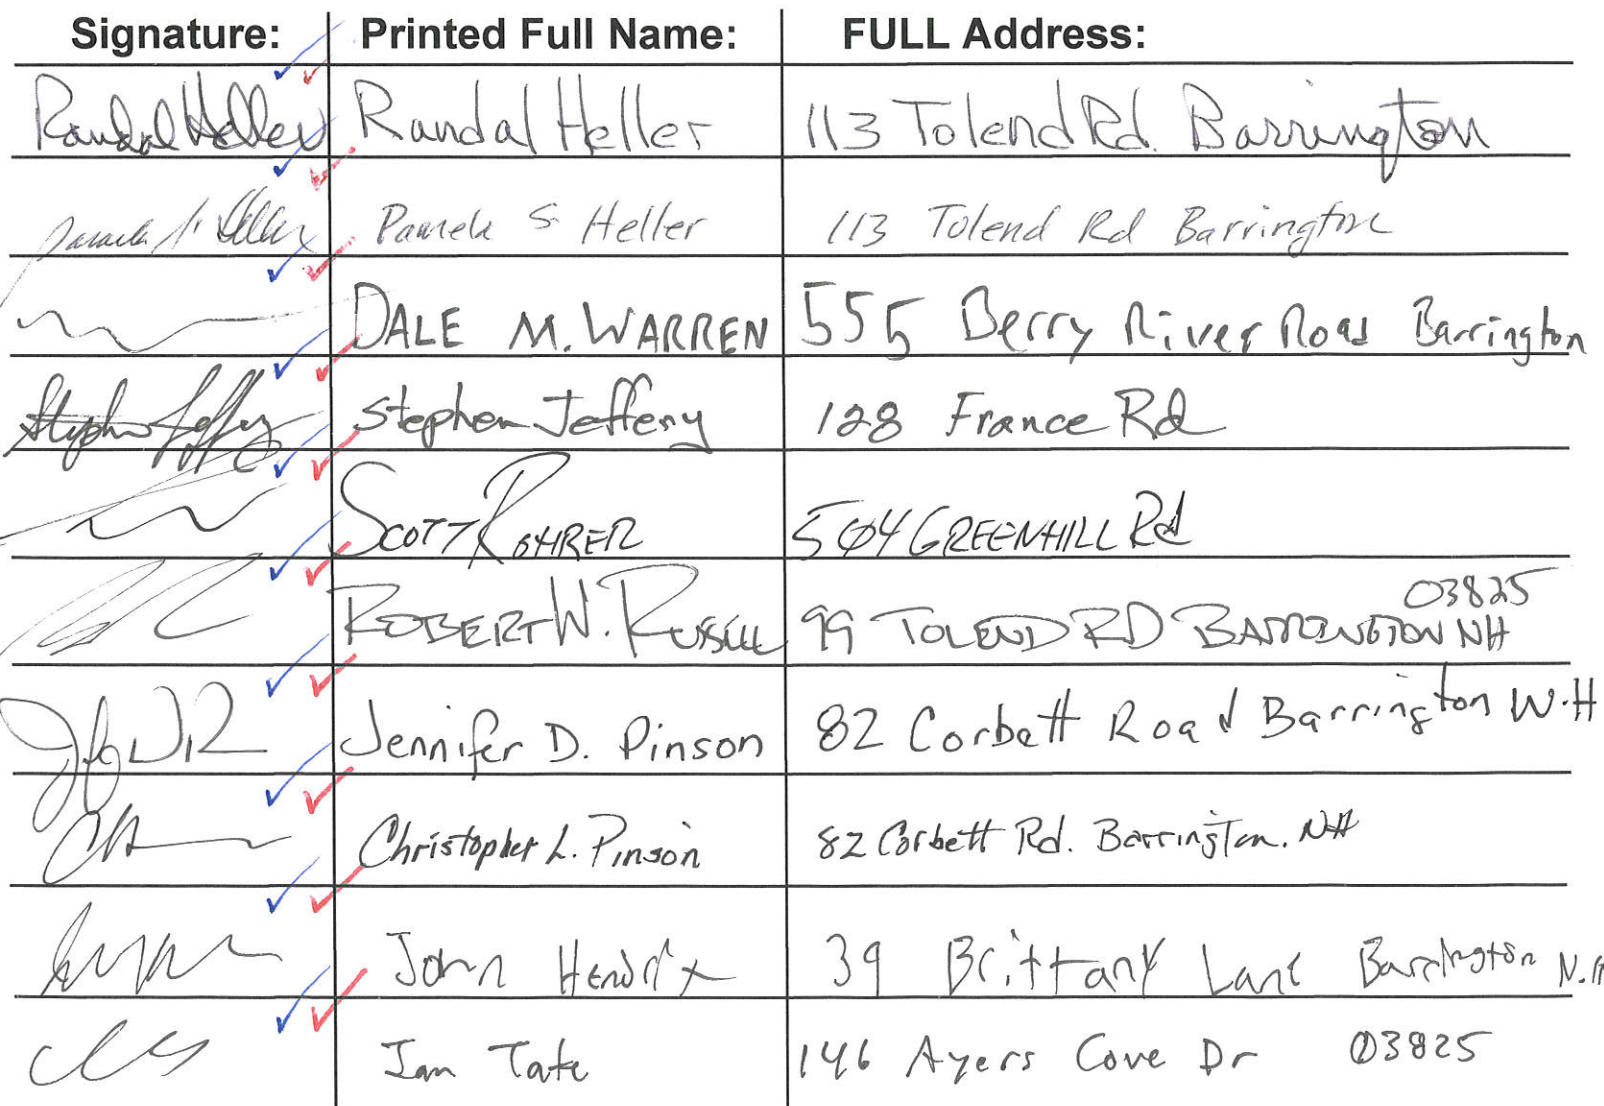 Signature: Printed Full Name: FULL Address:
Randal Heller Randal Heller 113 Tolend Rd. Barrington
Pamela S. Heller Pamela S Heller 113 Tolend Rd Barrington
DALE M. WARREN 555 Berry River Road Barrington
Stephen Jeffery Stephen Jeffery 128 France Rd
SCOTT ROHRER 504 GREENHILL Rd
03825
ROBERT W. RUSSELL 99 TOLEND RD BARRINGTON NH
Jennifer D. Pinson 82 Corbett Road Barrington N.H
Christopher L. Pinson 82 Corbett Rd. Barrington. NH
John Hendrix 39 Brittany Lane Barrington N.H
Ian Tate 146 Ayers Cove Dr 03825